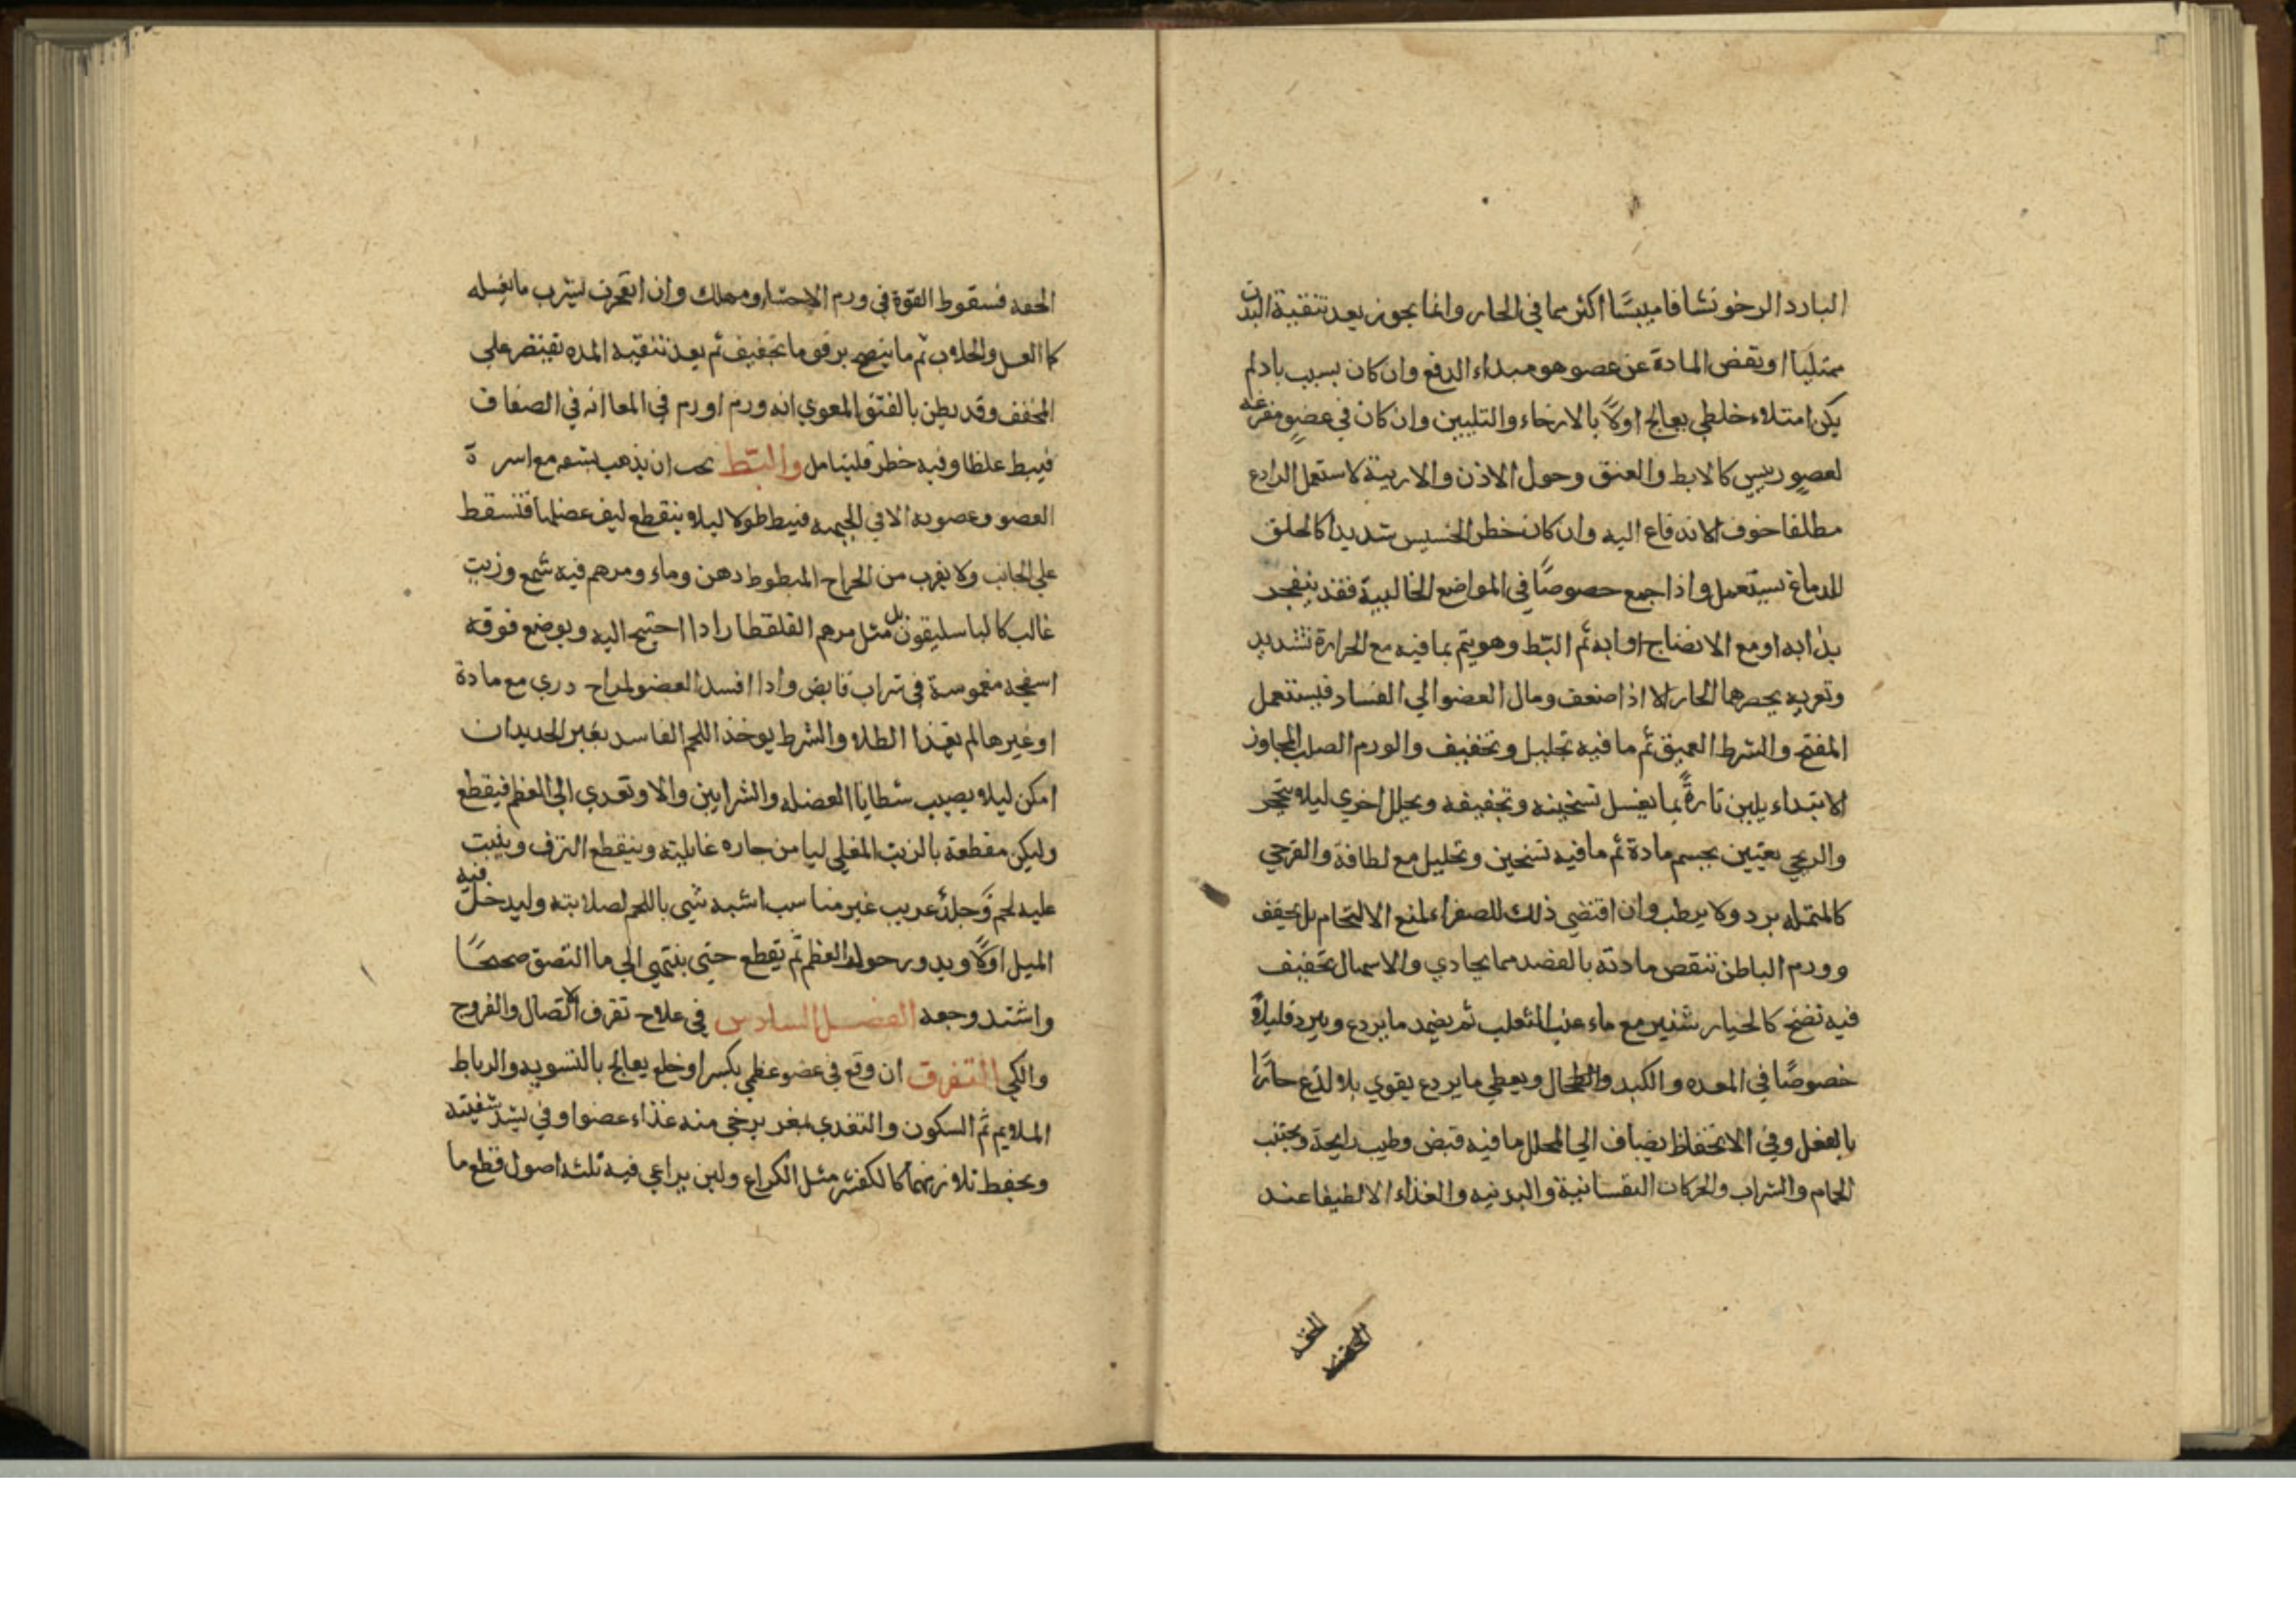 البارد الرخو نشافا ميبسًا اكثر مما في الحار وانما يجوز بعد تنقية البدن
ممتليا او تنقض المادة عن عضو هو مبداء الدفع وان كان بسبب بادلم
يكن امتلاء خلطي يعالج اولًا بالارخاء والتليين وان كان في عضو مفرغه
لعضو رييس كالابط والعنق وحول الاذن والاربية لا ستعمل الرادع
مطلقا خوف الاندفاع اليه وان كان خطر الخسيس شديدا كالحلق
للدماغ نسيتعمل واذا جمع خصوصًا في المواضع الخالبية فقد ينفجر
بذابه او مع الانضاج او ابه ثم البّط وهو يتم بما فيه مع الحرارة تشديد
وتغريه يحصرها الحار الا اذا ضعف ومال العضو الي الفساد فيستعمل
المفتح والشرط العميق ثم ما فيه تحليل وتخفيف والورم الصلب المجاوز
الابتداء يلين تارةً بما يغسل تسخينه وتجفيفه ويحلل اخري ليلا يتحجر
والريحي يعتين بجسم مادة ثم ما فيه تسخين وتحليل مع لطافة والقرحي
كالنمله يرد ولا يرطب وان اقتضي ذلك للصفراء لمنع الالتحام بل يجفف
وورم الباطن تنقص مادته بالفصد مما يحادي والاسهال بخفيف
فيه نضج كالخيار شنبر مع ماء عنب الثعلب ثم يضمد ما يردع ويبرد قليلًا
خصوصًا في المعده والكبد والطحال ويعطي ما يردع يقوي بلا لذع حارًا
بالفعل وفي الانحفاظ يضاف الي المحلل ما فيه قبض وطيب رايحة ويجتنب
الحمام والشراب والحركات النفسانية والبدنيه والغذاء الالطيفا عند
الخفه
الحفه فسقوط القوة في ورم الاحشاء ومهلك وان انفجرت ليشرب ما يغسله
كا العسل والجلاب ثم ما ينضج برفق وما بتجفيف ثم بعد تنقيه المده يقتصر علي
المخفف وقد يظن بالفتق المعوي انه ورم او ورم في المعا انه في الصفاف
فيبط غلطا وفيه خطر فليتامل والبَّط يجب ان يذهب بشقه مع اسرة
العضو وغضونه الا في الجبهه فنبط طولا ليلا ينقطع ليف عضلها فتسقط
علي الحاجب ولا يقرب من الجراح المبطوط دهن وماء ومرهم فيه شمع وزيت
غالب كالباسليقون بل مثل مرهم القلقطار اذا احتيج اليه ويوضع فوقه
اسفنجه مغموسة في شراب قابض واذا افسد العضو لمزاح دري مع مادة
او غيرها لم يغذا الطلاء والشرط يوخذ اللحم الفاسد بغير الحديد ان
امكن ليلا يصيب شظايا العضله والشرايين والا وتعدي الي العظم فيقطع
وليكن مقطعة بالزيت المغلي ليامن جاره غايليته وينقطع النزف وينبت
عليه لحم وَّجلد غريب غير مناسب اشبه شي باللحم لصلابته وليدخل فيه
الميل اولًا ويدور حول العظم ثم يقطع حتى ينتهي الي ما التصق صحيحًا
واشتد وجعه الفصل السادس في علاج تفرق الاتصال والقروح
والكي التفرق ان وقع في عضو عظمي بكسر او خلع يعالج بالتسويه والرباط
الملايم ثم السكون والتغدي بمغر يرخي منه غذاء عضوا وفي يشد شفيته
ويحفظ تلازنهما كالكفتر مثل الكراع ولبن يراعي فيه ثلثه اصول قطع ما